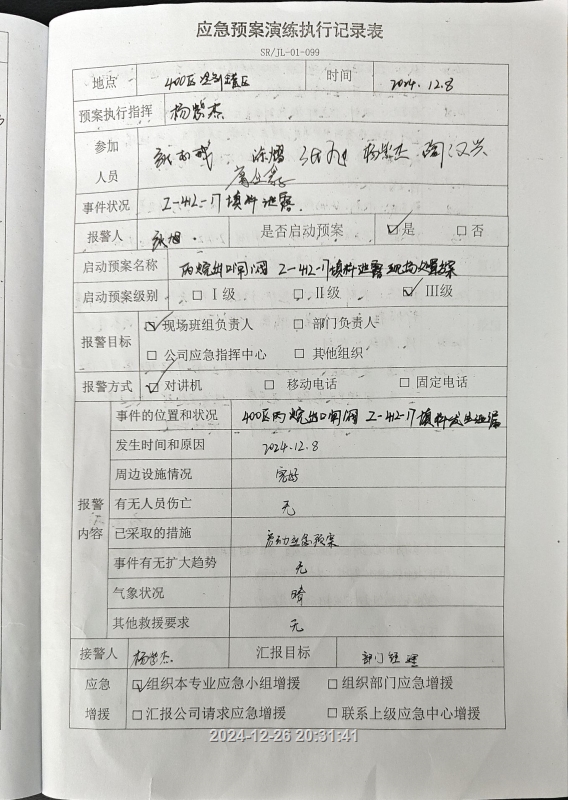 应急预案演练执行记录表
SR/JL-01-099
地点 400区 罐区 时间 2024.12.8
预案执行指挥 杨紫杰
参加 杨紫杰 陶汉兴
人员
事件状况 Z-412-17填料泄露.
报警人 是否启动预案 ☑是 □否
启动预案名称 丙烷出口闸阀 Z-412-17填料泄露现场处置案
启动预案级别 □Ⅰ级 □Ⅱ级 ☑Ⅲ级
报警目标 ☑现场班组负责人 □部门负责人
□公司应急指挥中心 □其他组织
报警方式 ☑对讲机 □移动电话 □固定电话
报警内容
事件的位置和状况 400区丙烷出口闸阀 Z-412-17填料发生泄漏
发生时间和原因 2024.12.8
周边设施情况 完好
有无人员伤亡 无
已采取的措施 启动应急预案
事件有无扩大趋势 无
气象状况 晴
其他救援要求 无
接警人 杨紫杰. 汇报目标 部门经理
应急 ☑组织本专业应急小组增援 □组织部门应急增援
增援 □汇报公司请求应急增援 □联系上级应急中心增援
2024-12-26 20:31:41